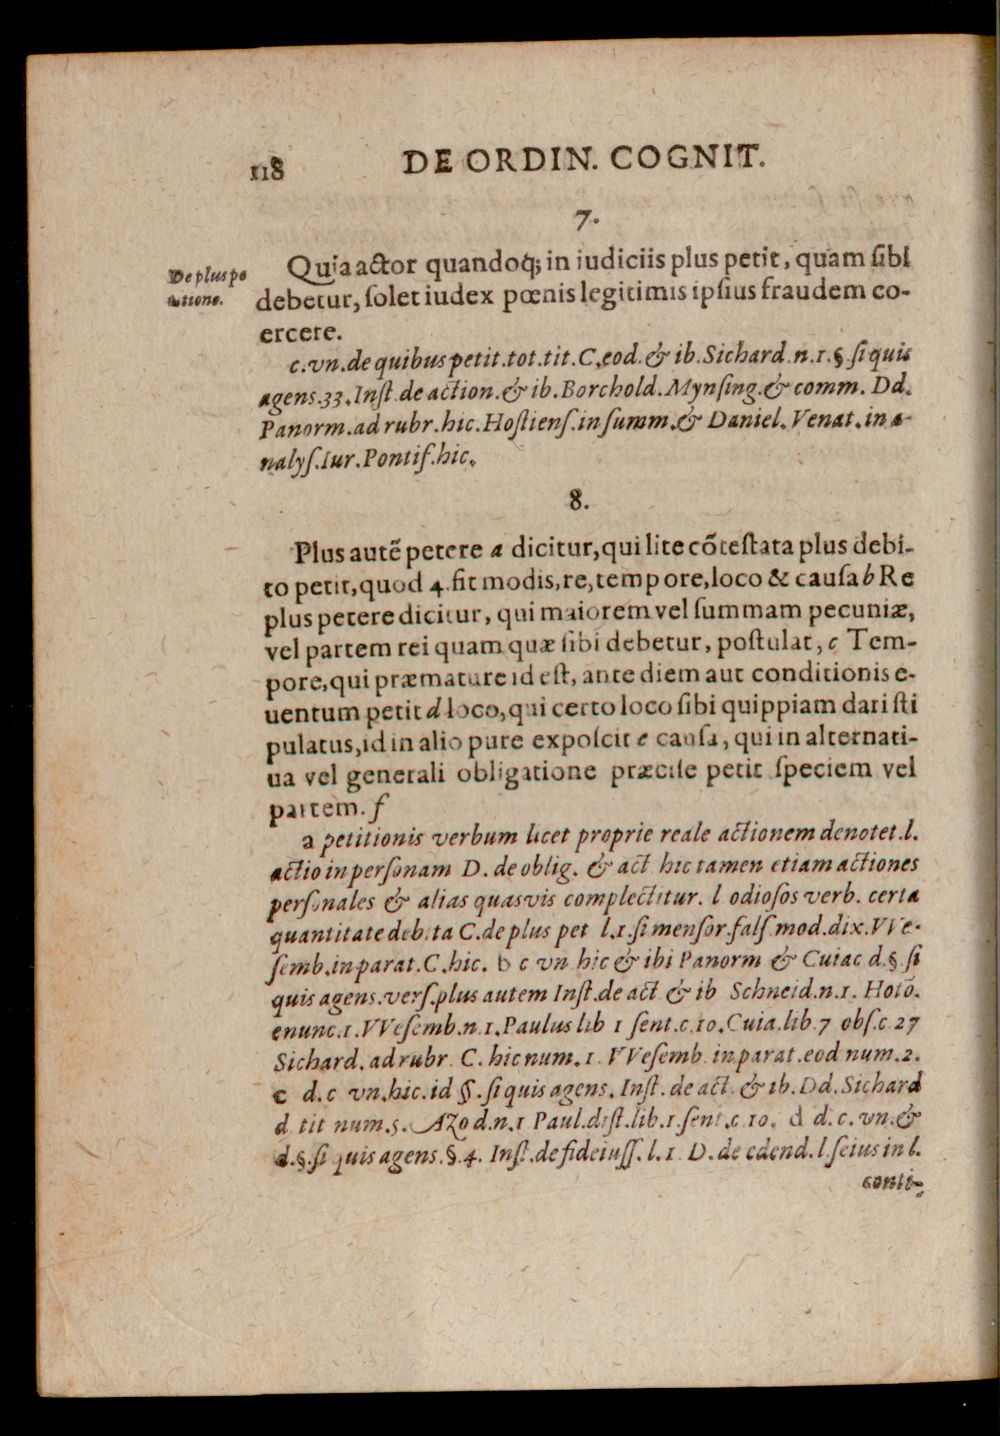 118 DE ORDIN. COGNIT.
7.
De plus pe
titione.
Quia actor quandoq; in iudiciis plus petit, quam sibi
debetur, solet iudex pœnis legitimis ipsius fraudem co-
ercere.
c. vn. de quibus petit. tot. tit. C. eod. & ib. Sichard. n. 1. §. si quis
agens. 33. Inst. de action. & ib. Borchold. Mynsing. & comm. Dd.
Panorm. ad rubr. hic. Hostiens. in summ. & Daniel. Venat. in a-
nalys. Iur. Pontif. hic.
8.
Plus autẽ petere a dicitur, qui lite cõtestata plus debi-
to petit, quod 4. fit modis, re, tempore, loco & causa b Re
plus petere dicitur, qui maiorem vel summam pecuniæ,
vel partem rei quam quæ sibi debetur, postulat, c Tem-
pore, qui præmature id est, ante diem aut conditionis e-
uentum petit d loco, qui certo loco sibi quippiam dari sti
pulatus, id in alio pure exposcit e causa, qui in alternati-
ua vel generali obligatione præcise petit speciem vel
partem. f
a petitionis verbum licet proprie reale actionem denotet. l.
actio in personam D. de oblig. & act hic tamen etiam actiones
personales & alias quasvis complectitur. l odiosos verb. certa
quantitate debita C. de plus pet l. 1. si mensor. fals. mod. dix. VVe-
semb. in parat. C. hic. b c vn hic & ibi Panorm & Cuiac d. §. si
quis agens. vers. plus autem Inst. de act & ib Schneid. n. 1. Hotõ.
enunc. 1. VVesemb. n. 1. Paulus lib 1 sent. c. 10. Cuia. lib. 7 obs. c 27
Sichard. ad rubr C. hic num. 1 VVesemb in parat. eod num. 2.
c d. c vn. hic. id §. si quis agens. Inst. de act. & ib. Dd. Sichard
d tit num. 5. AZo d. n. 1 Paul. dist. lib. 1. sent. c 10. d d. c. vn. &
d. §. si quis agens. §. 4. Inst. de fideiuss. l. 1 D. de edend. l seius in l.
conti-